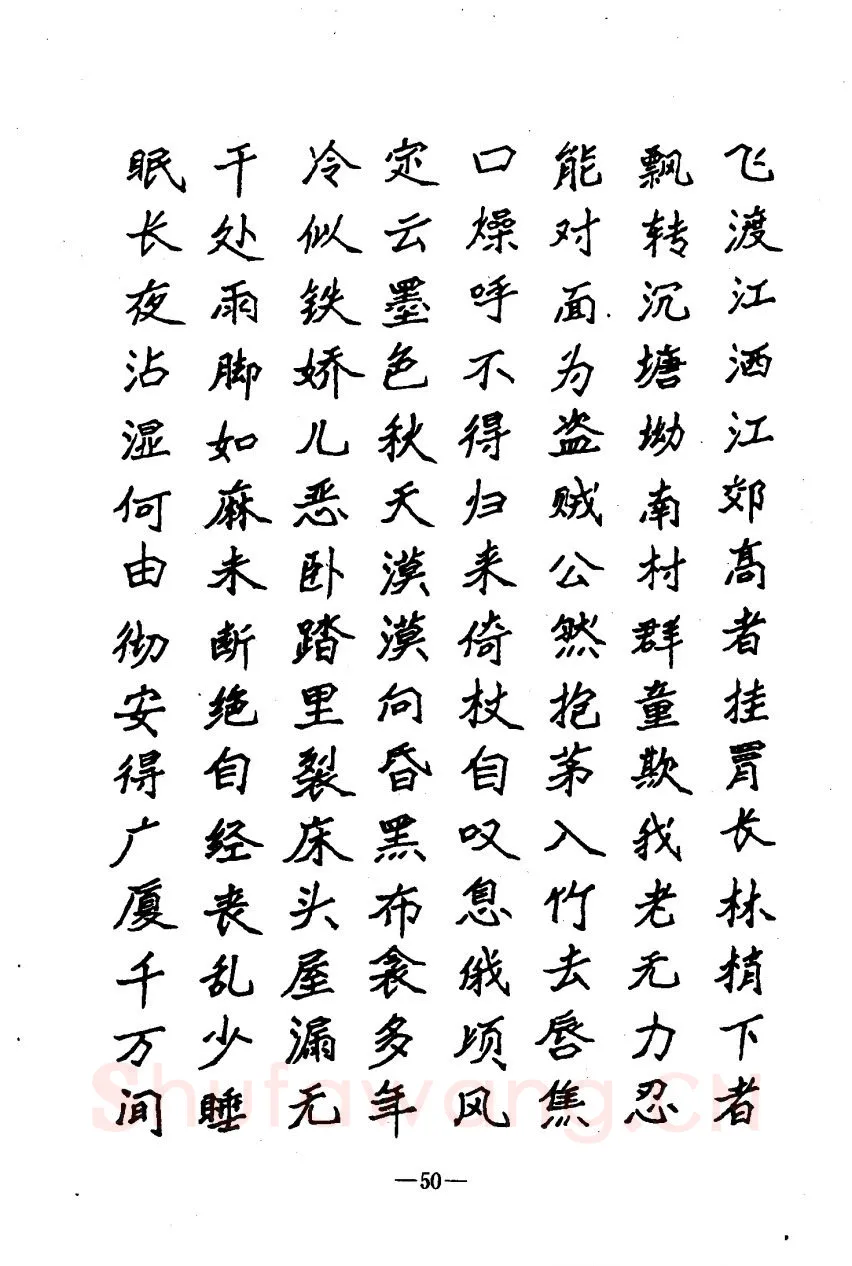 飞渡江洒江郊高者挂罥长林梢下者
飘转沉塘坳南村群童欺我老无力忍
能对面为盗贼公然抱茅入竹去唇焦
口燥呼不得归来倚杖自叹息俄顷风
定云墨色秋天漠漠向昏黑布衾多年
冷似铁娇儿恶卧踏里裂床头屋漏无
干处雨脚如麻未断绝自经丧乱少睡
眠长夜沾湿何由彻安得广厦千万间
—50—
Shufawang.CN